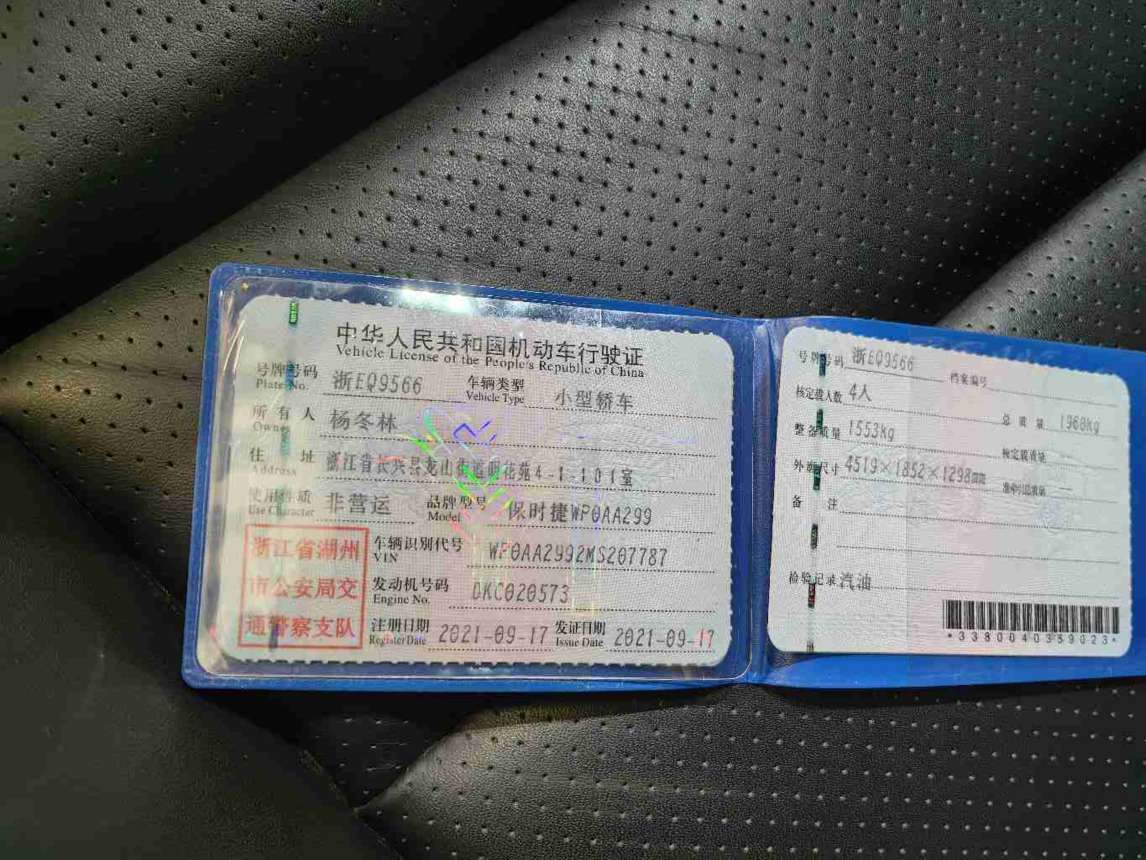 中华人民共和国机动车行驶证
Vehicle License of the People's Republic of China
号牌号码 浙EQ9566 车辆类型 小型轿车
Plate No. Vehicle Type
所有人 杨冬林
Owner
住址 浙江省长兴县龙山街道 花苑4-1-101室
Address
使用性质 非营运 品牌型号 保时捷WP0AA299
Use Character Model
浙江省湖州
市公安局交
通警察支队
车辆识别代号 WP0AA2992MS207787
VIN
发动机号码 DKC020573
Engine No.
注册日期 2021-09-17 发证日期 2021-09-17
Register Date Issue Date
号牌号码 浙EQ9566 档案编号
核定载人数 4人 总质量 1960kg
整备质量 1553kg 核定载质量 --
外廓尺寸 4519×1852×1298mm 准牵引总质量 --
备注
检验记录 汽油
*3380040359023*